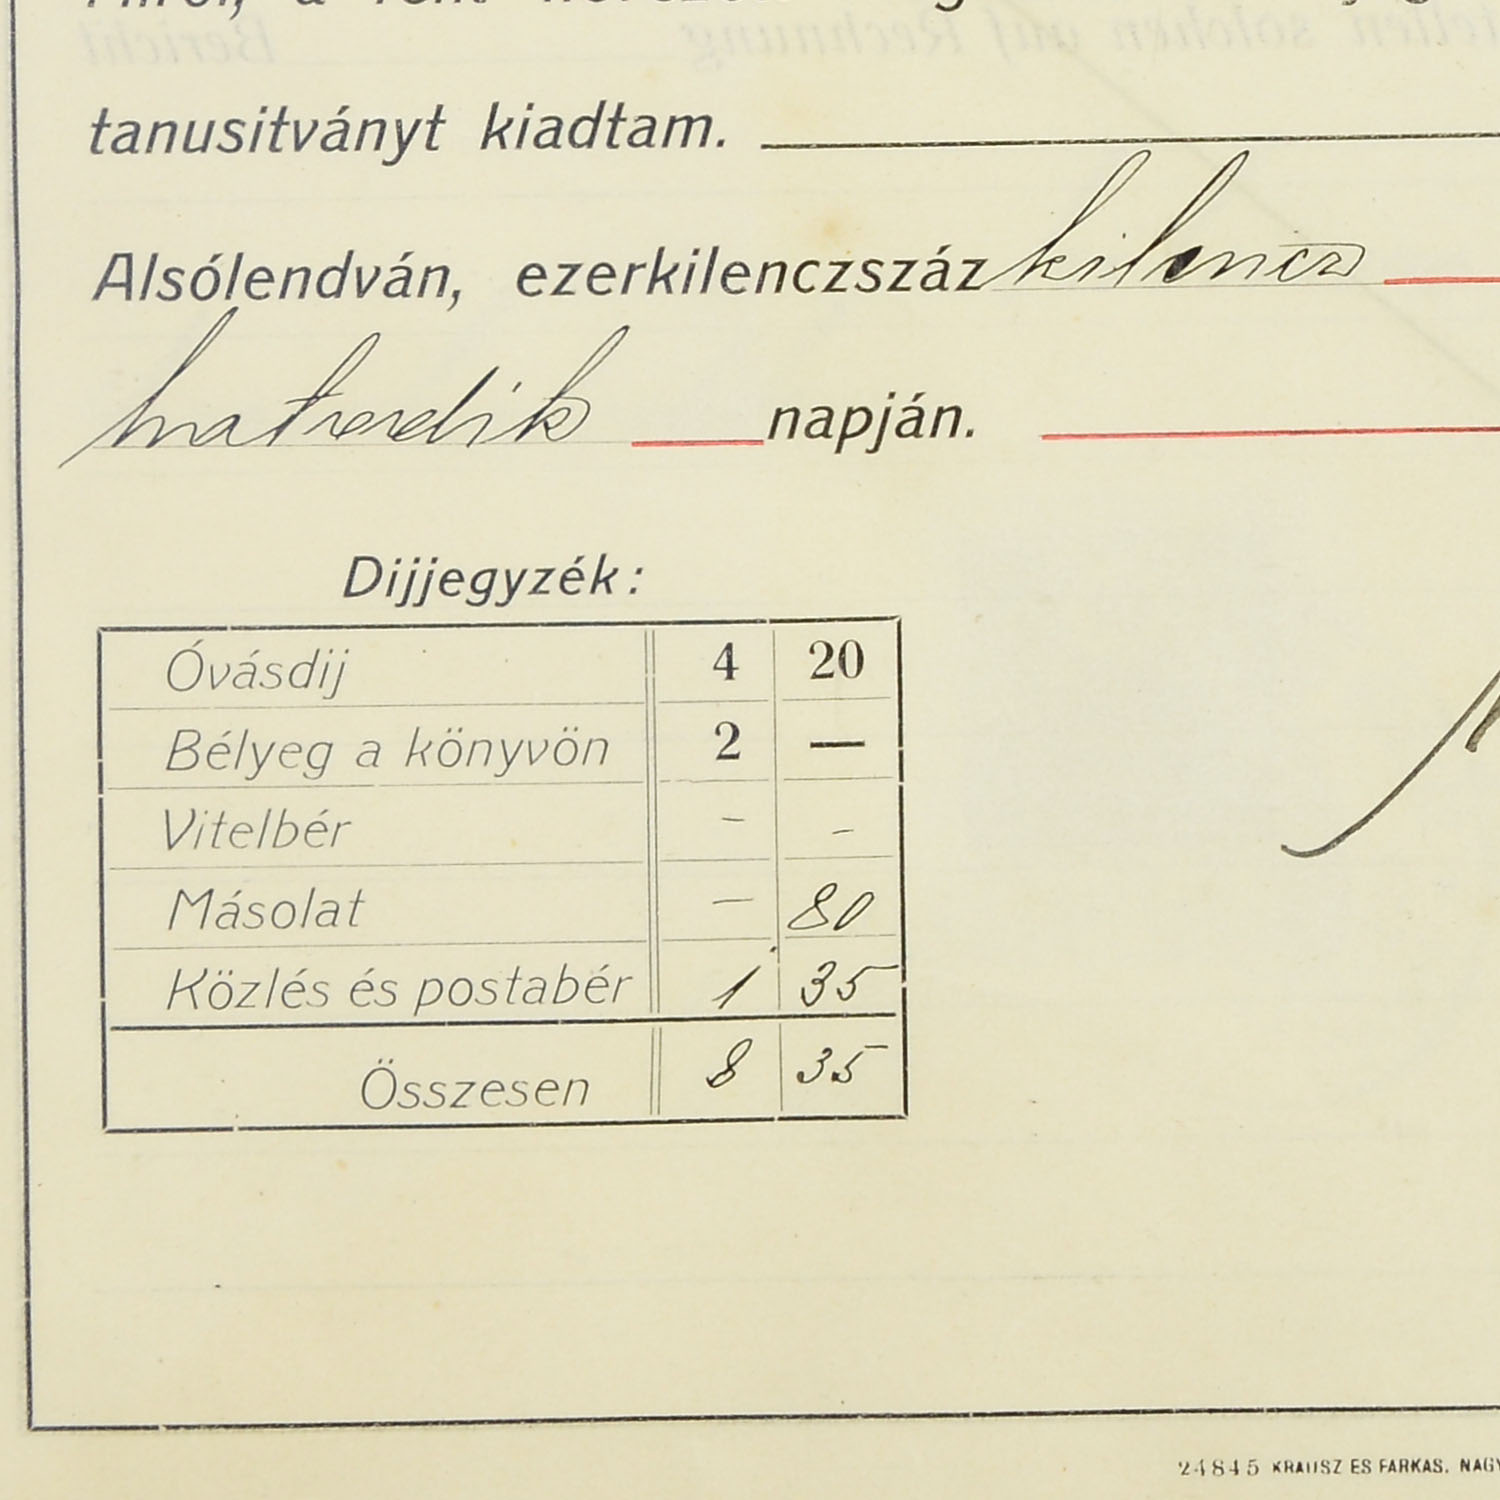 tanusitványt kiadtam.
Alsólendván, ezerkilenczszáz kilencz
hatvadik napján.
Dijjegyzék:
Óvásdij 4 20
Bélyeg a könyvön 2 —
Vitelbér - -
Másolat — 80
Közlés és postabér 1 35
Összesen 8 35
24845 KRAUSZ ES FARKAS. NAGY